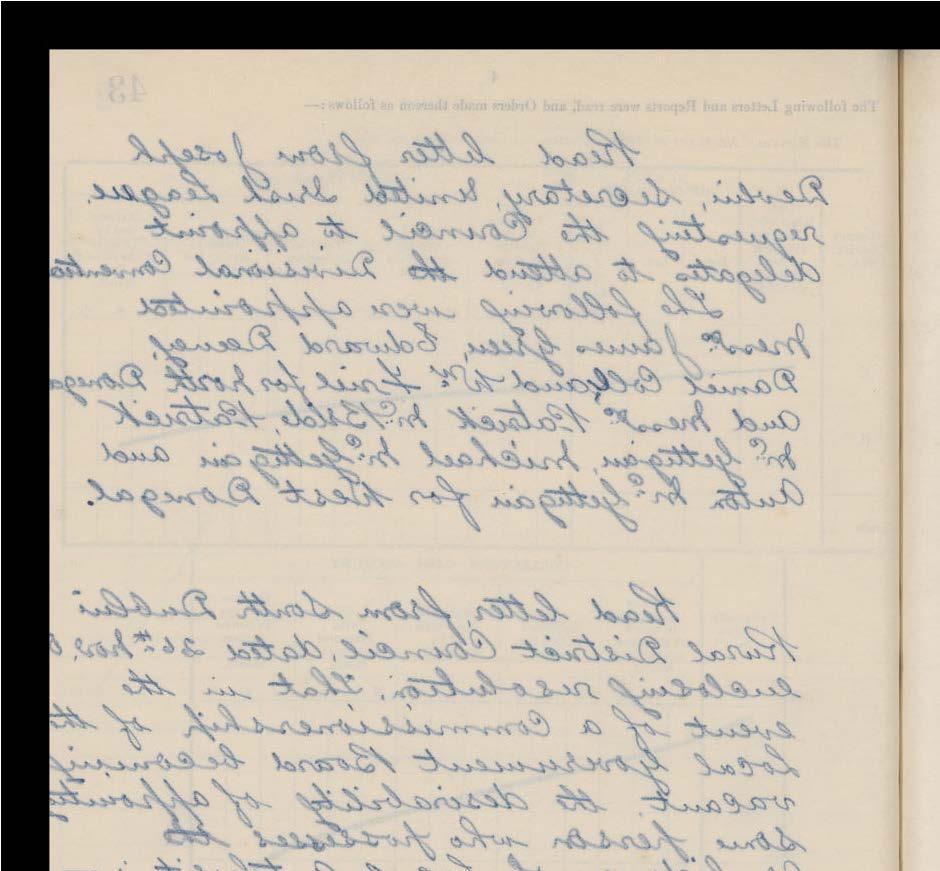 43
The following Letters and Reports were read, and Orders made thereon as follows:—
Read letter from Joseph
Devlin, Secretary, United Irish League,
requesting the Council to appoint
delegates to attend the Divisional Convention
The following were appointed
Messrs James Green, Edward Deeney,
Daniel Coll, and Wm Friel for North Donegal
and Messrs Patrick McBride, Patrick
McGettigan, Michael McGettigan and
Anton McGettigan for West Donegal.
Read letter from South Dublin
Rural District Council, dated 26th Nov.
enclosing resolution, "That, in the
event of a Commissionership of the
Local Government Board becoming
vacant, the desirability of appointing
some person who possesses the